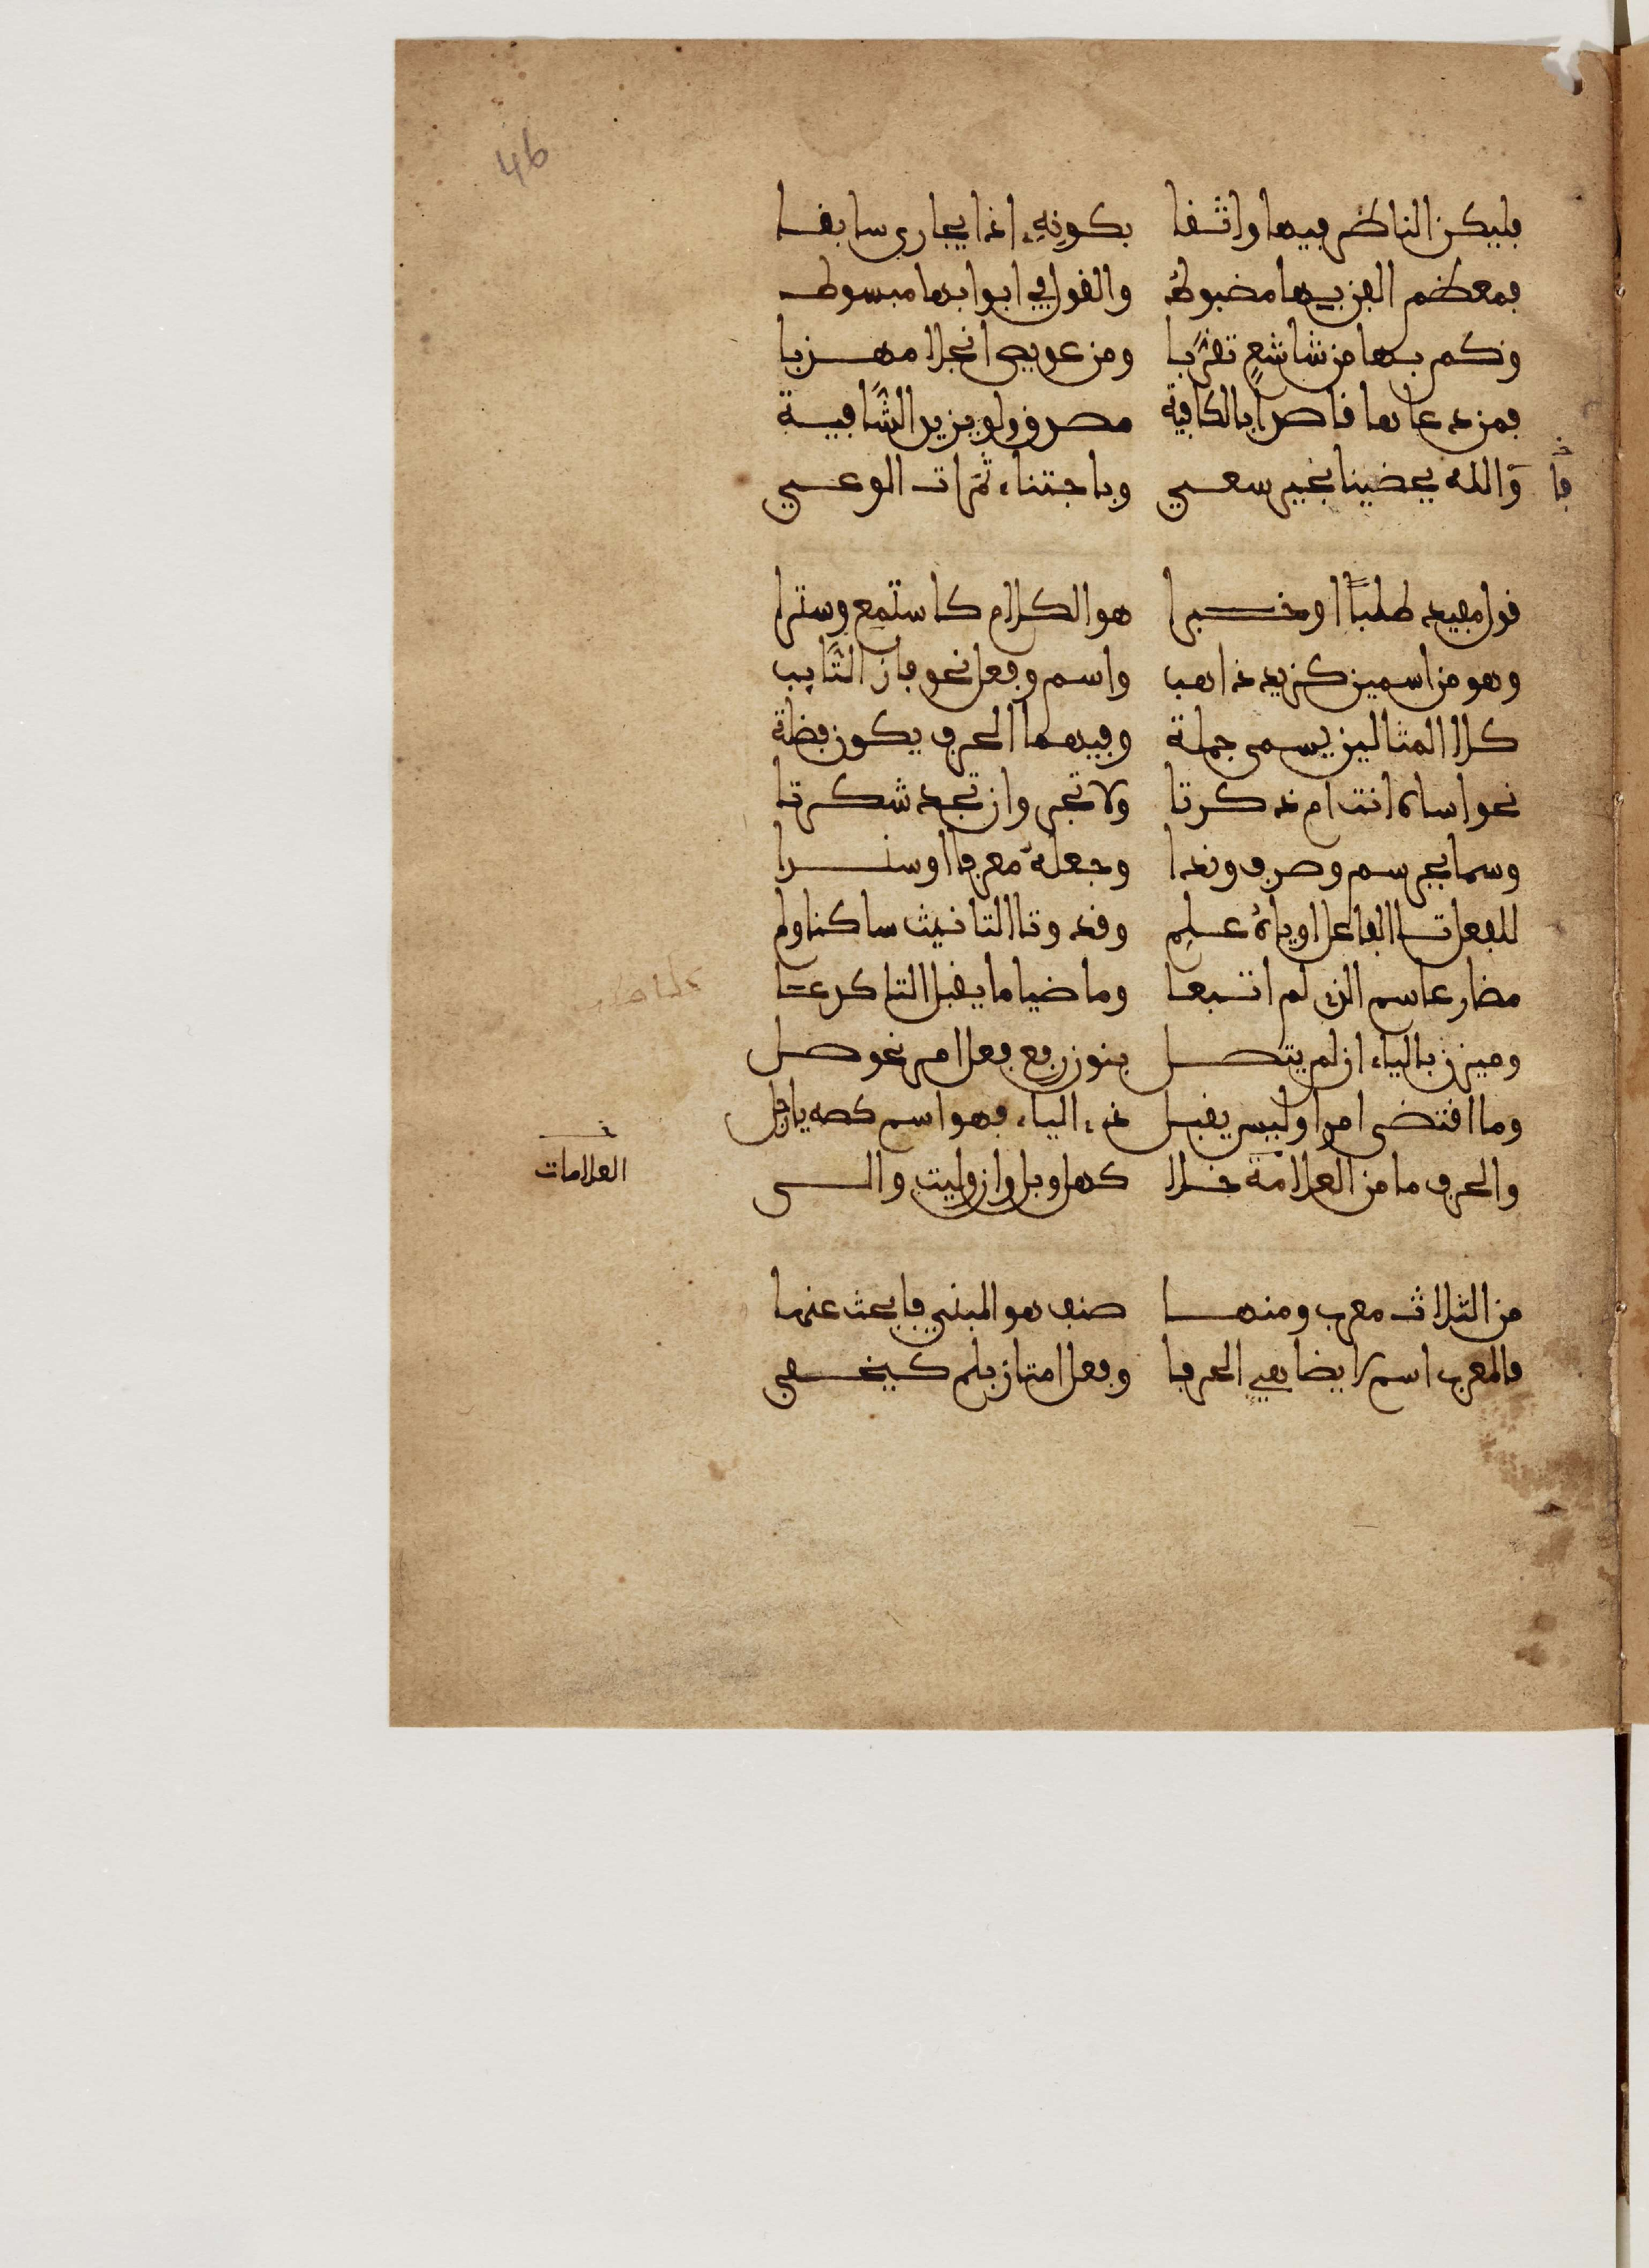 4b
فليكن الناظر فيها واثقا بكونِهِ اذا يجارى سابقا
فمعظم الفن بها مضبوطُ والقول في ابوابها مبسوط
وكم بها من شاسعٍ تقرَّبا ومن عويص انجلا مهذبا
فمن دعاها قاصرا بالكافية مصدق ولو يزيد الشَّافية
فا خ
وَالله يحضينا بخير سعي وباجتناء ثمَرات الوعي
قول مفيد طلبًا او خبرا هو الكلام كاستمِع وسترا
وهو من اسمين كزيد ذاهب واسم وفعل نحو فاز التَّايب
كلا المثالين يسمى جملة وفيهما الحرف يكون فضلة
نحو اساه انت ام ذكرتا ولا تجر وان تجد شكرتا
وسما بجر سم وصرف وندا وجعلهُ معرفا او سندا
للفعل تا الفاعل او ياهُ علِم وقد وتا التانيث ساكنا ولم
مضارعا سم الذى لم اتبعا وماضيا ما يقبل التا كرعتا
وميزن بالياء ان لم يتصل بنون رفع فعل امر نحو صل
وما اقتضى امرا وليس يقبل ذي الياء فهو اسم كصه يا رجل
والحرف ما من العلامة خلا كهل وبل وان وليت والى
خ
العلامات
من الثلاث معرب ومنها صنف هو المبني فابحث عنها
فالمعرب اسم لا يضاهي الحرفا وفعل امتاز بلم كيخفى